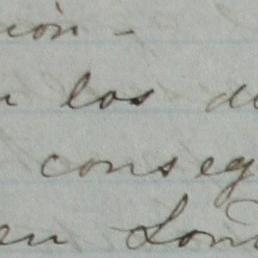 ión -
los d
conseg
en Lon